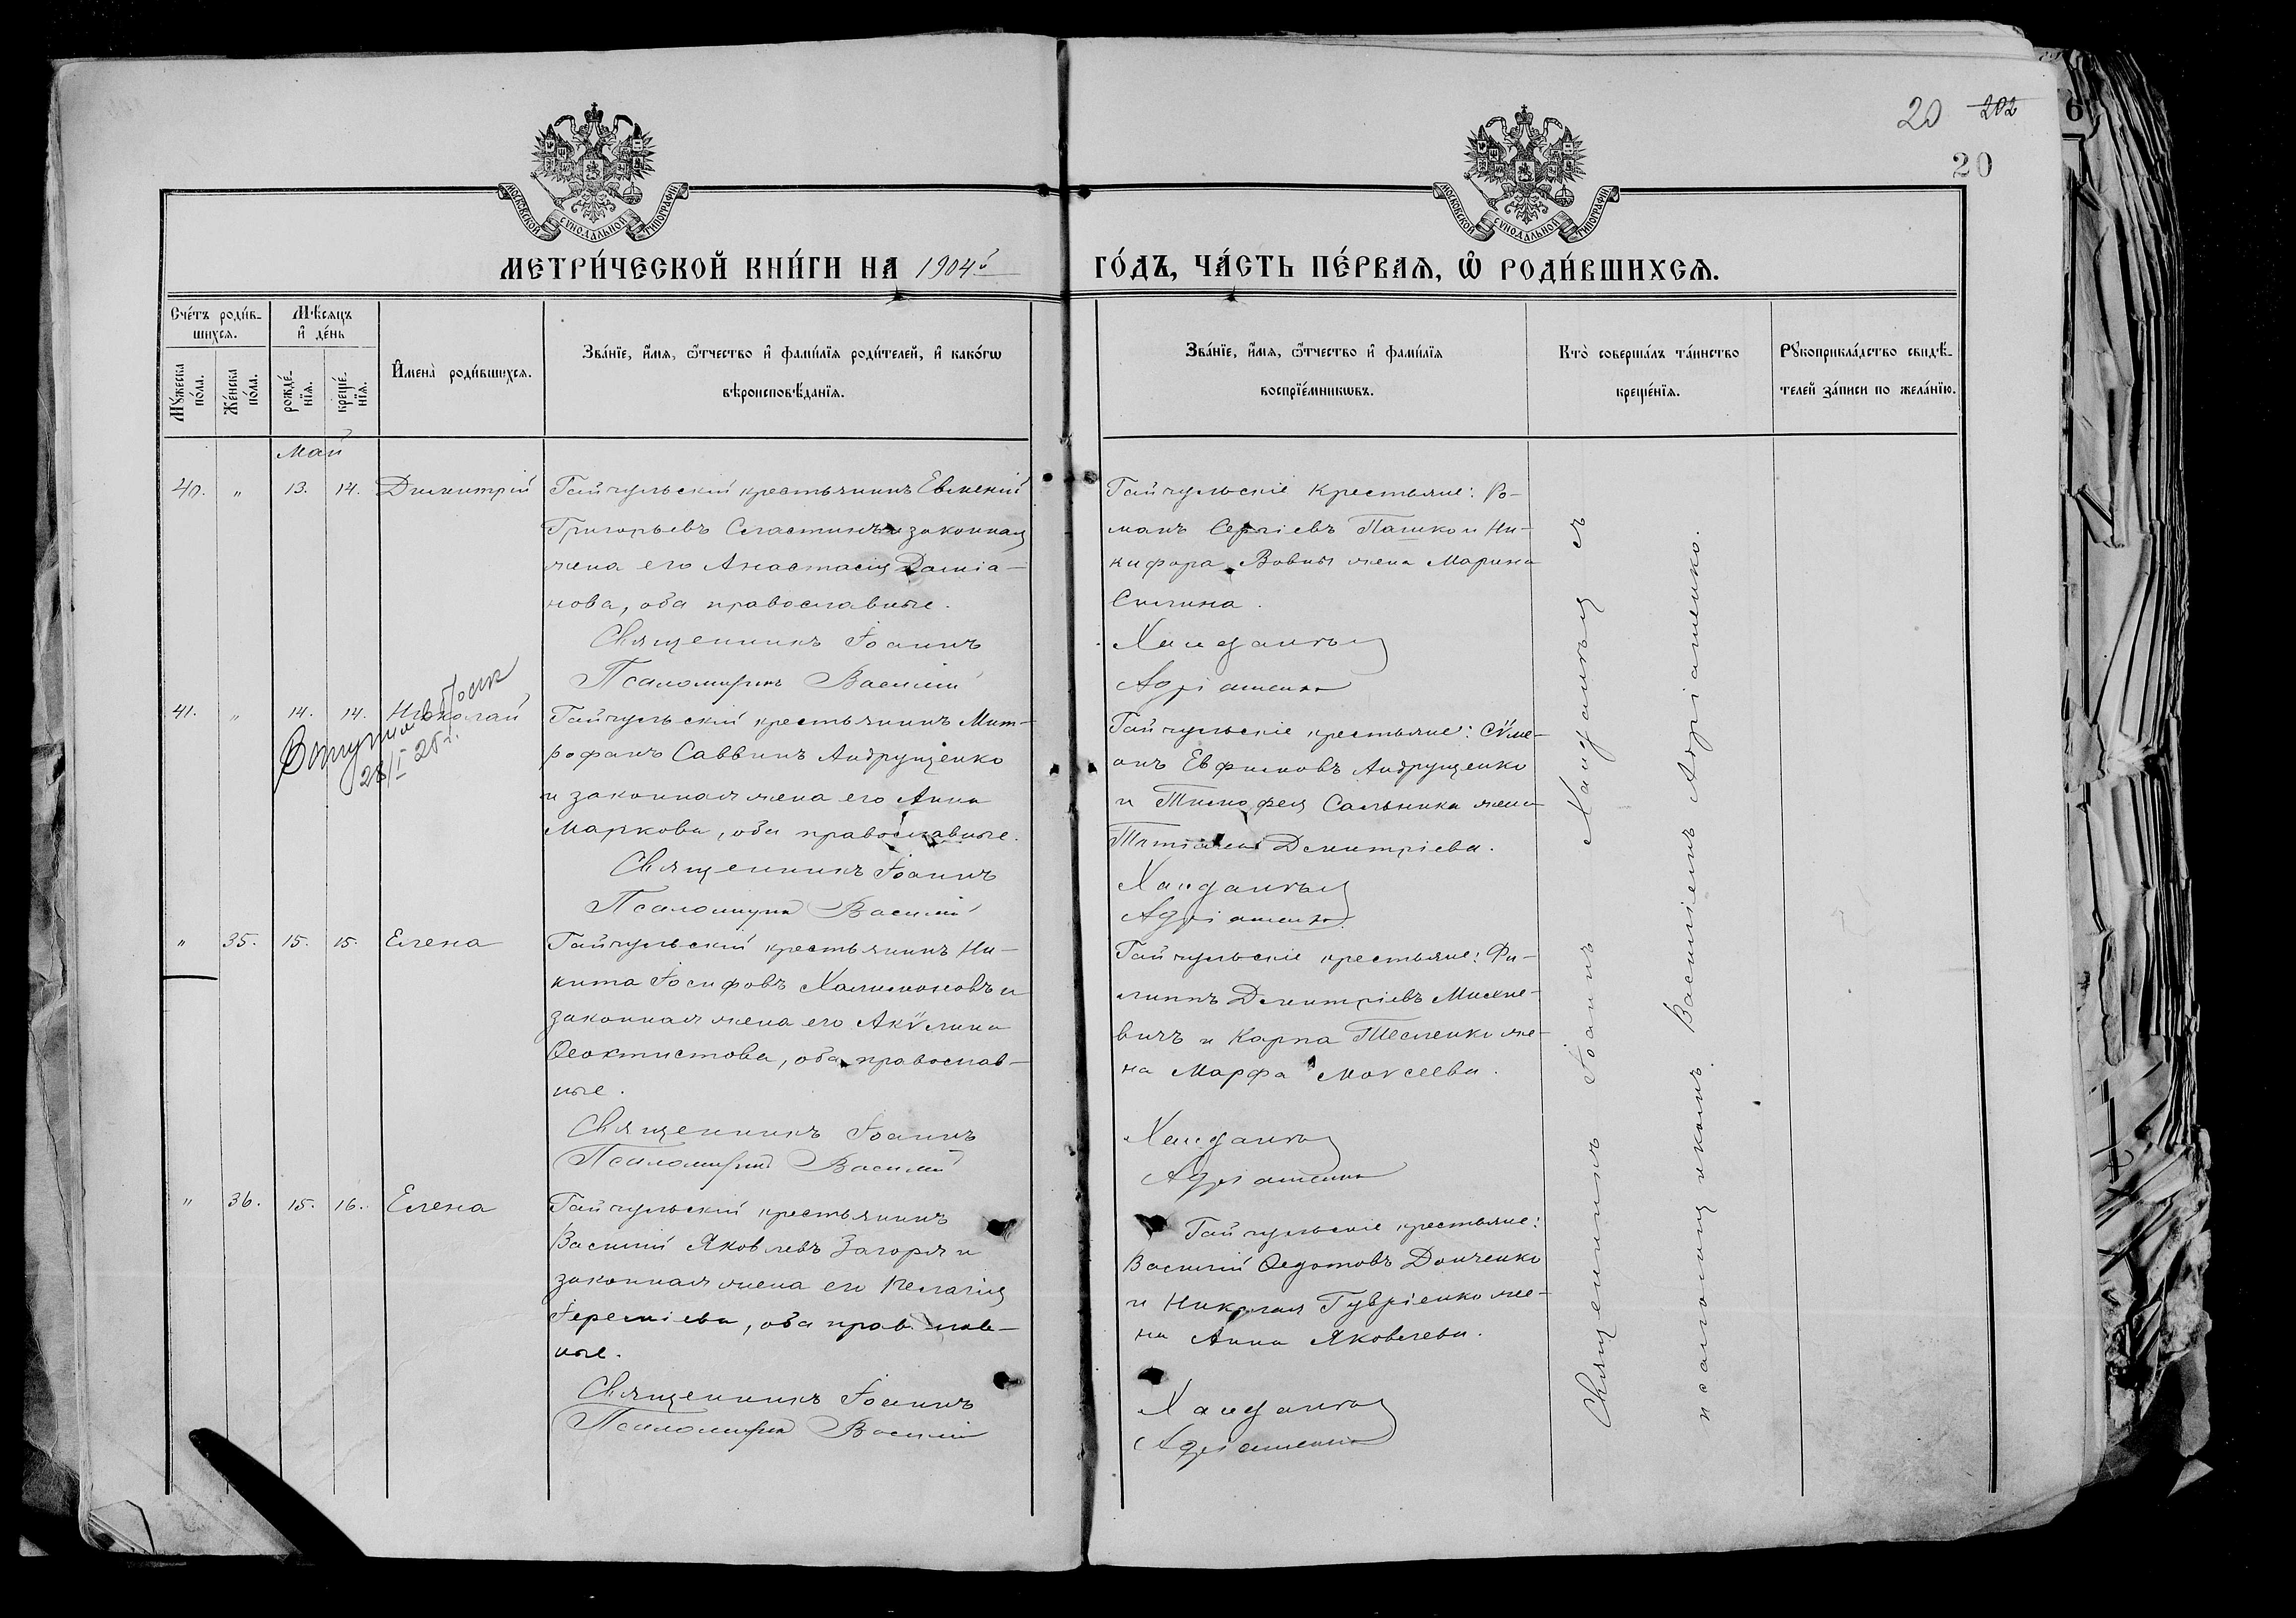 20 202
20
6
МОСКОВСКОЙ СѴНОДАЛЬНОЙ ТИПОГРАФІИ
МОСКОВСКОЙ СѴНОДАЛЬНОЙ ТИПОГРАФІИ
МЕТРИ́ЧЕСКОЙ КНИ́ГИ НА 1904й
ГО́ДЪ, ЧА́СТЬ ПЕ́РВАѦ, Ѡ҆ РОДИ́ВШИХСѦ.
Сче́тъ роди́в-
шихсѧ.
Мꙋ́жеска по́ла.
Же́нска по́ла.
Мѣ́сѧцъ
и҆ де́нь
рожде́-
нїѧ.
креще́-
нїѧ.
И҆мена̀ роди́вшихсѧ.
Зва́нїе, и҆́мѧ, ѻ҆́тчество и҆ фами́лїѧ роди́телей, и҆ како́гѡ
вѣроисповѣ́данїѧ.
Зва́нїе, и҆́мѧ, ѻ҆́тчество и҆ фами́лїѧ
воспрїе́мникѡвъ.
Кто̀ соверша́лъ та́инство
креще́нїѧ.
Рꙋкоприкла́дство свидѣ́-
телей за́писи по жела́нїю.
Май
40. " 13. 14. Димитрій
Гайчульскій крестьянинъ Евмений
Григорьевъ Сластинъ и законная
жена его Анастасія Даміа-
нова, оба православные.
Священникъ Іоаннъ
Псаломщикъ Василій
Гайчульскіе крестьяне: Ро-
манъ Сергіевъ Пашко и Ни-
кифора Вовны жена Марина
Силина.
Ханданья
Адріашенко
41. " 14. 14. Николай
Вступил в брак
28/I 25 г.
Гайчульскій крестьянинъ Мит-
рофанъ Саввинъ Андрущенко
и законная жена его Анна
Маркова, оба православные.
Священникъ Іоаннъ
Псаломщикъ Василій
Гайчульскіе крестьяне: Сѵме-
онъ Евфимовъ Андрущенко
и Тимофея Сальника жена
Татіана Димитріева.
Ханданья
Адріашенко
" 35. 15. 15. Елена
Гайчульскій крестьянинъ Ни-
кита Іосифовъ Халимоновъ и
законная жена его Акѵлина
Ѳеоктистова, оба православ-
ные.
Священникъ Іоаннъ
Псаломщикъ Василій
Гайчульскіе крестьяне: Фи-
липпъ Димитріевъ Михне-
вичъ и Карпа Тесленко же-
на Марфа Моѵсеева.
Ханданья
Адріашенко
" 36. 15. 16. Елена
Гайчульскій крестьянинъ
Василій Яковлевъ Загоря и
законная жена его Пелагія
Іереміева, оба православ-
ные.
Священникъ Іоаннъ
Псаломщикъ Василій
Гайчульскіе крестьяне:
Василій Ѳедотовъ Донченко
и Николая Гувріенко же-
на Анна Яковлева.
Ханданья
Адріашенко
Священникъ Іоаннъ Ханданья съ
псаломщикомъ Василіемъ Адріашенко.